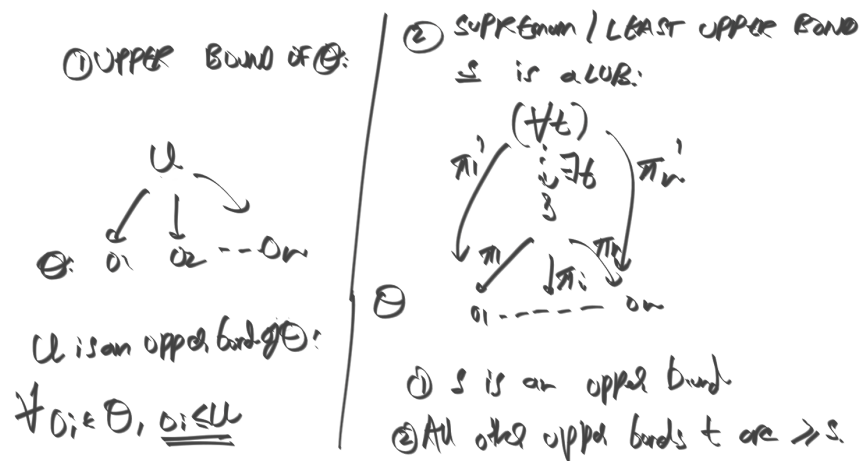 ① UPPER BOUND OF Θ:
U
Θ: O1 O2 --- On
U is an upper bond of Θ:
∀ Oi ∈ Θ, Oi ≤ U
② SUPREmum / LEAST UPPER BOND
S is a LUB:
(∀t)
π1' ∃f πn'
S
π1 πi πn
Θ O1 ------ On
① S is an upper bund
② All other upper bonds t are ⩾ S.